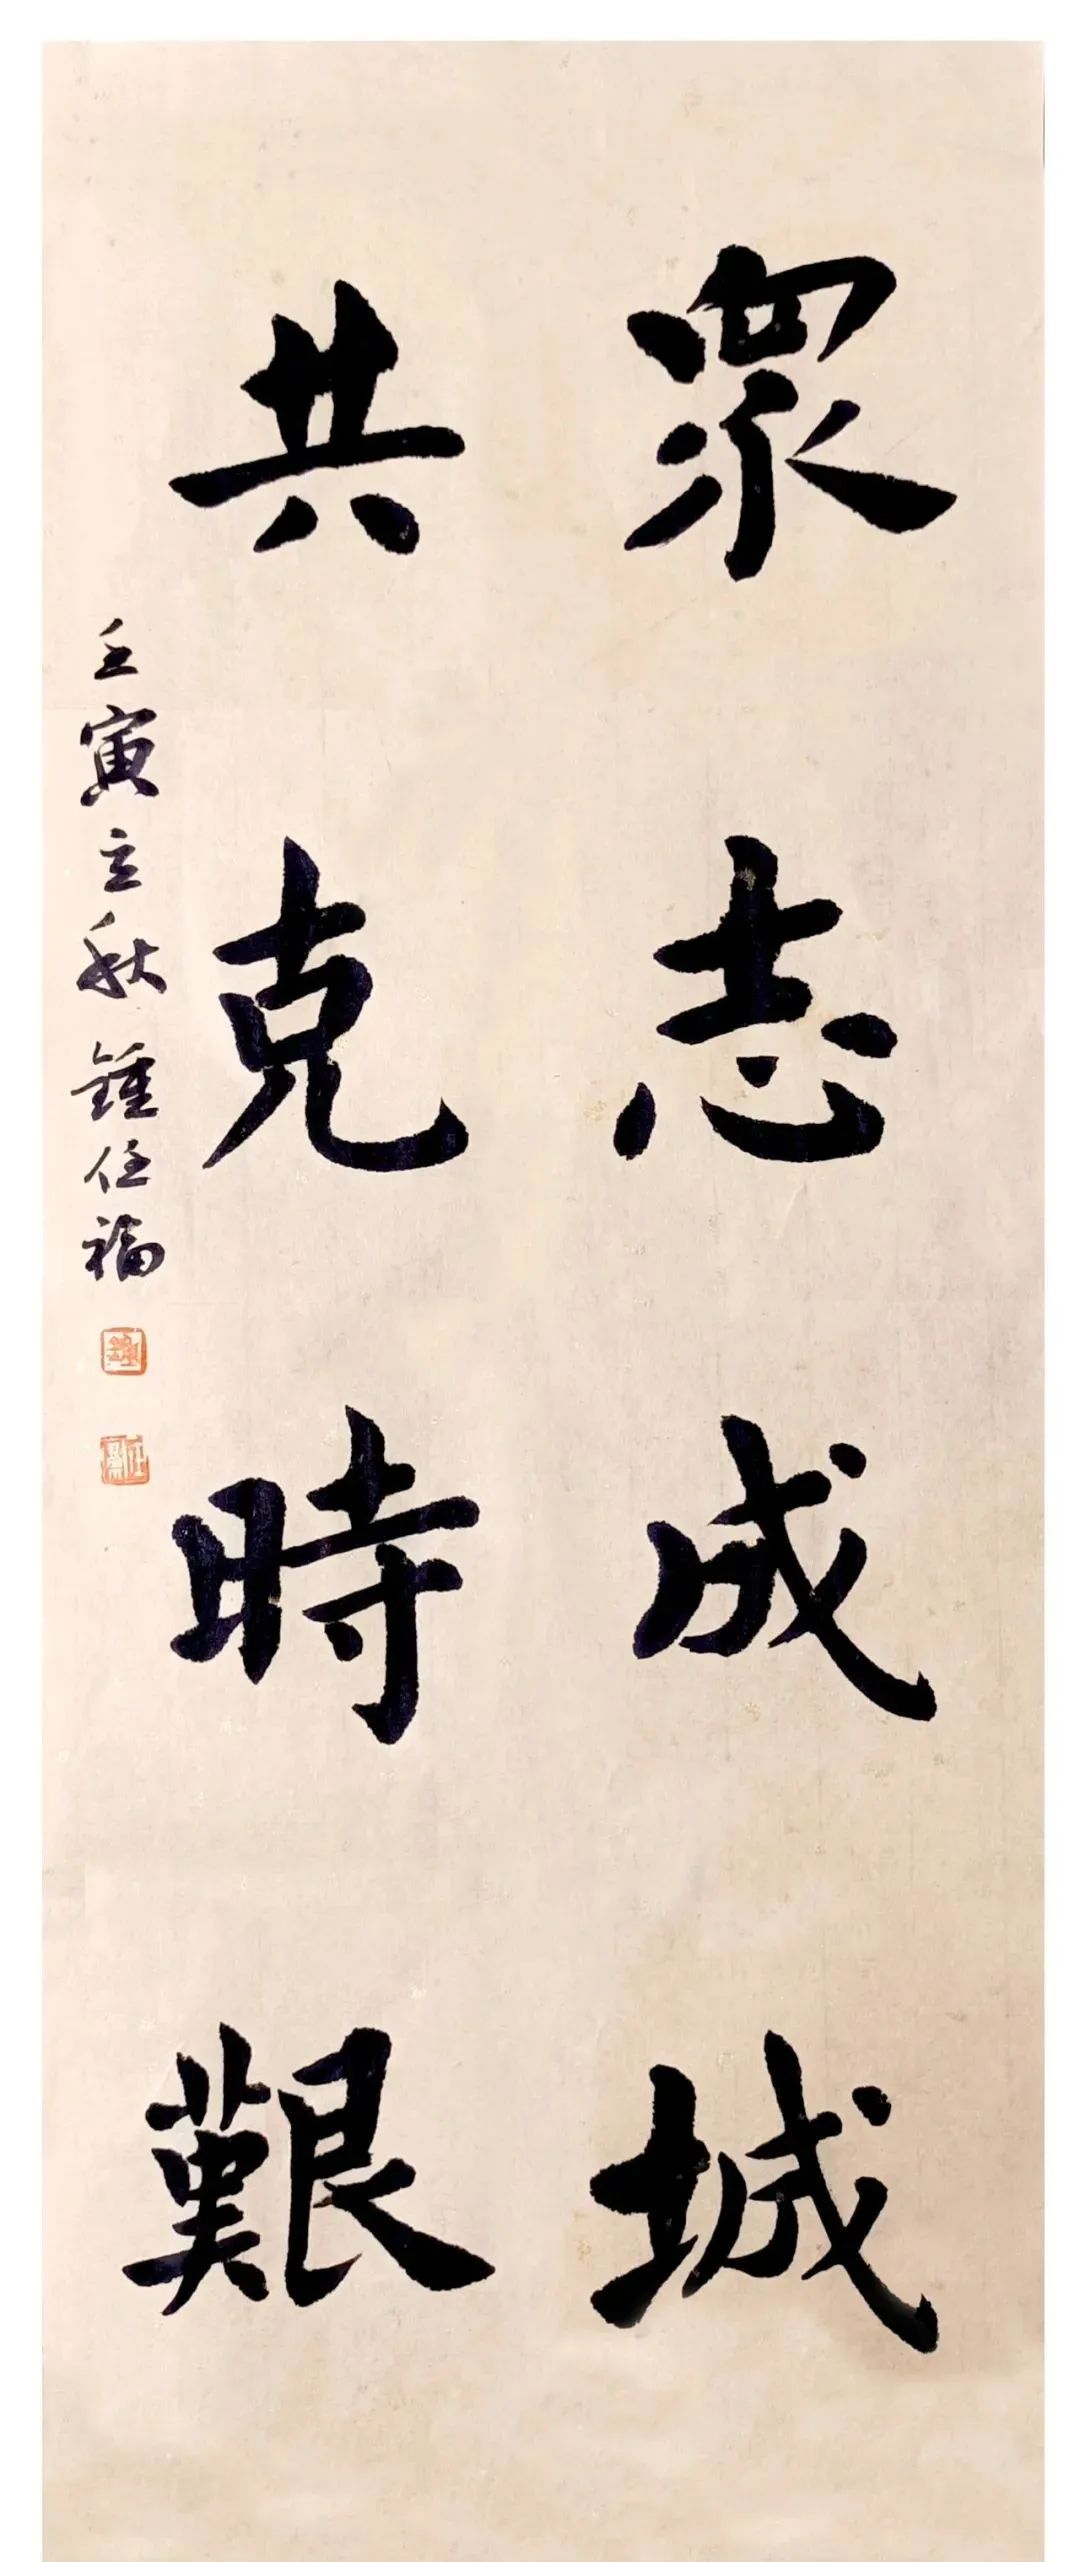 眾志成城
共克時艱
壬寅立秋鍾任福